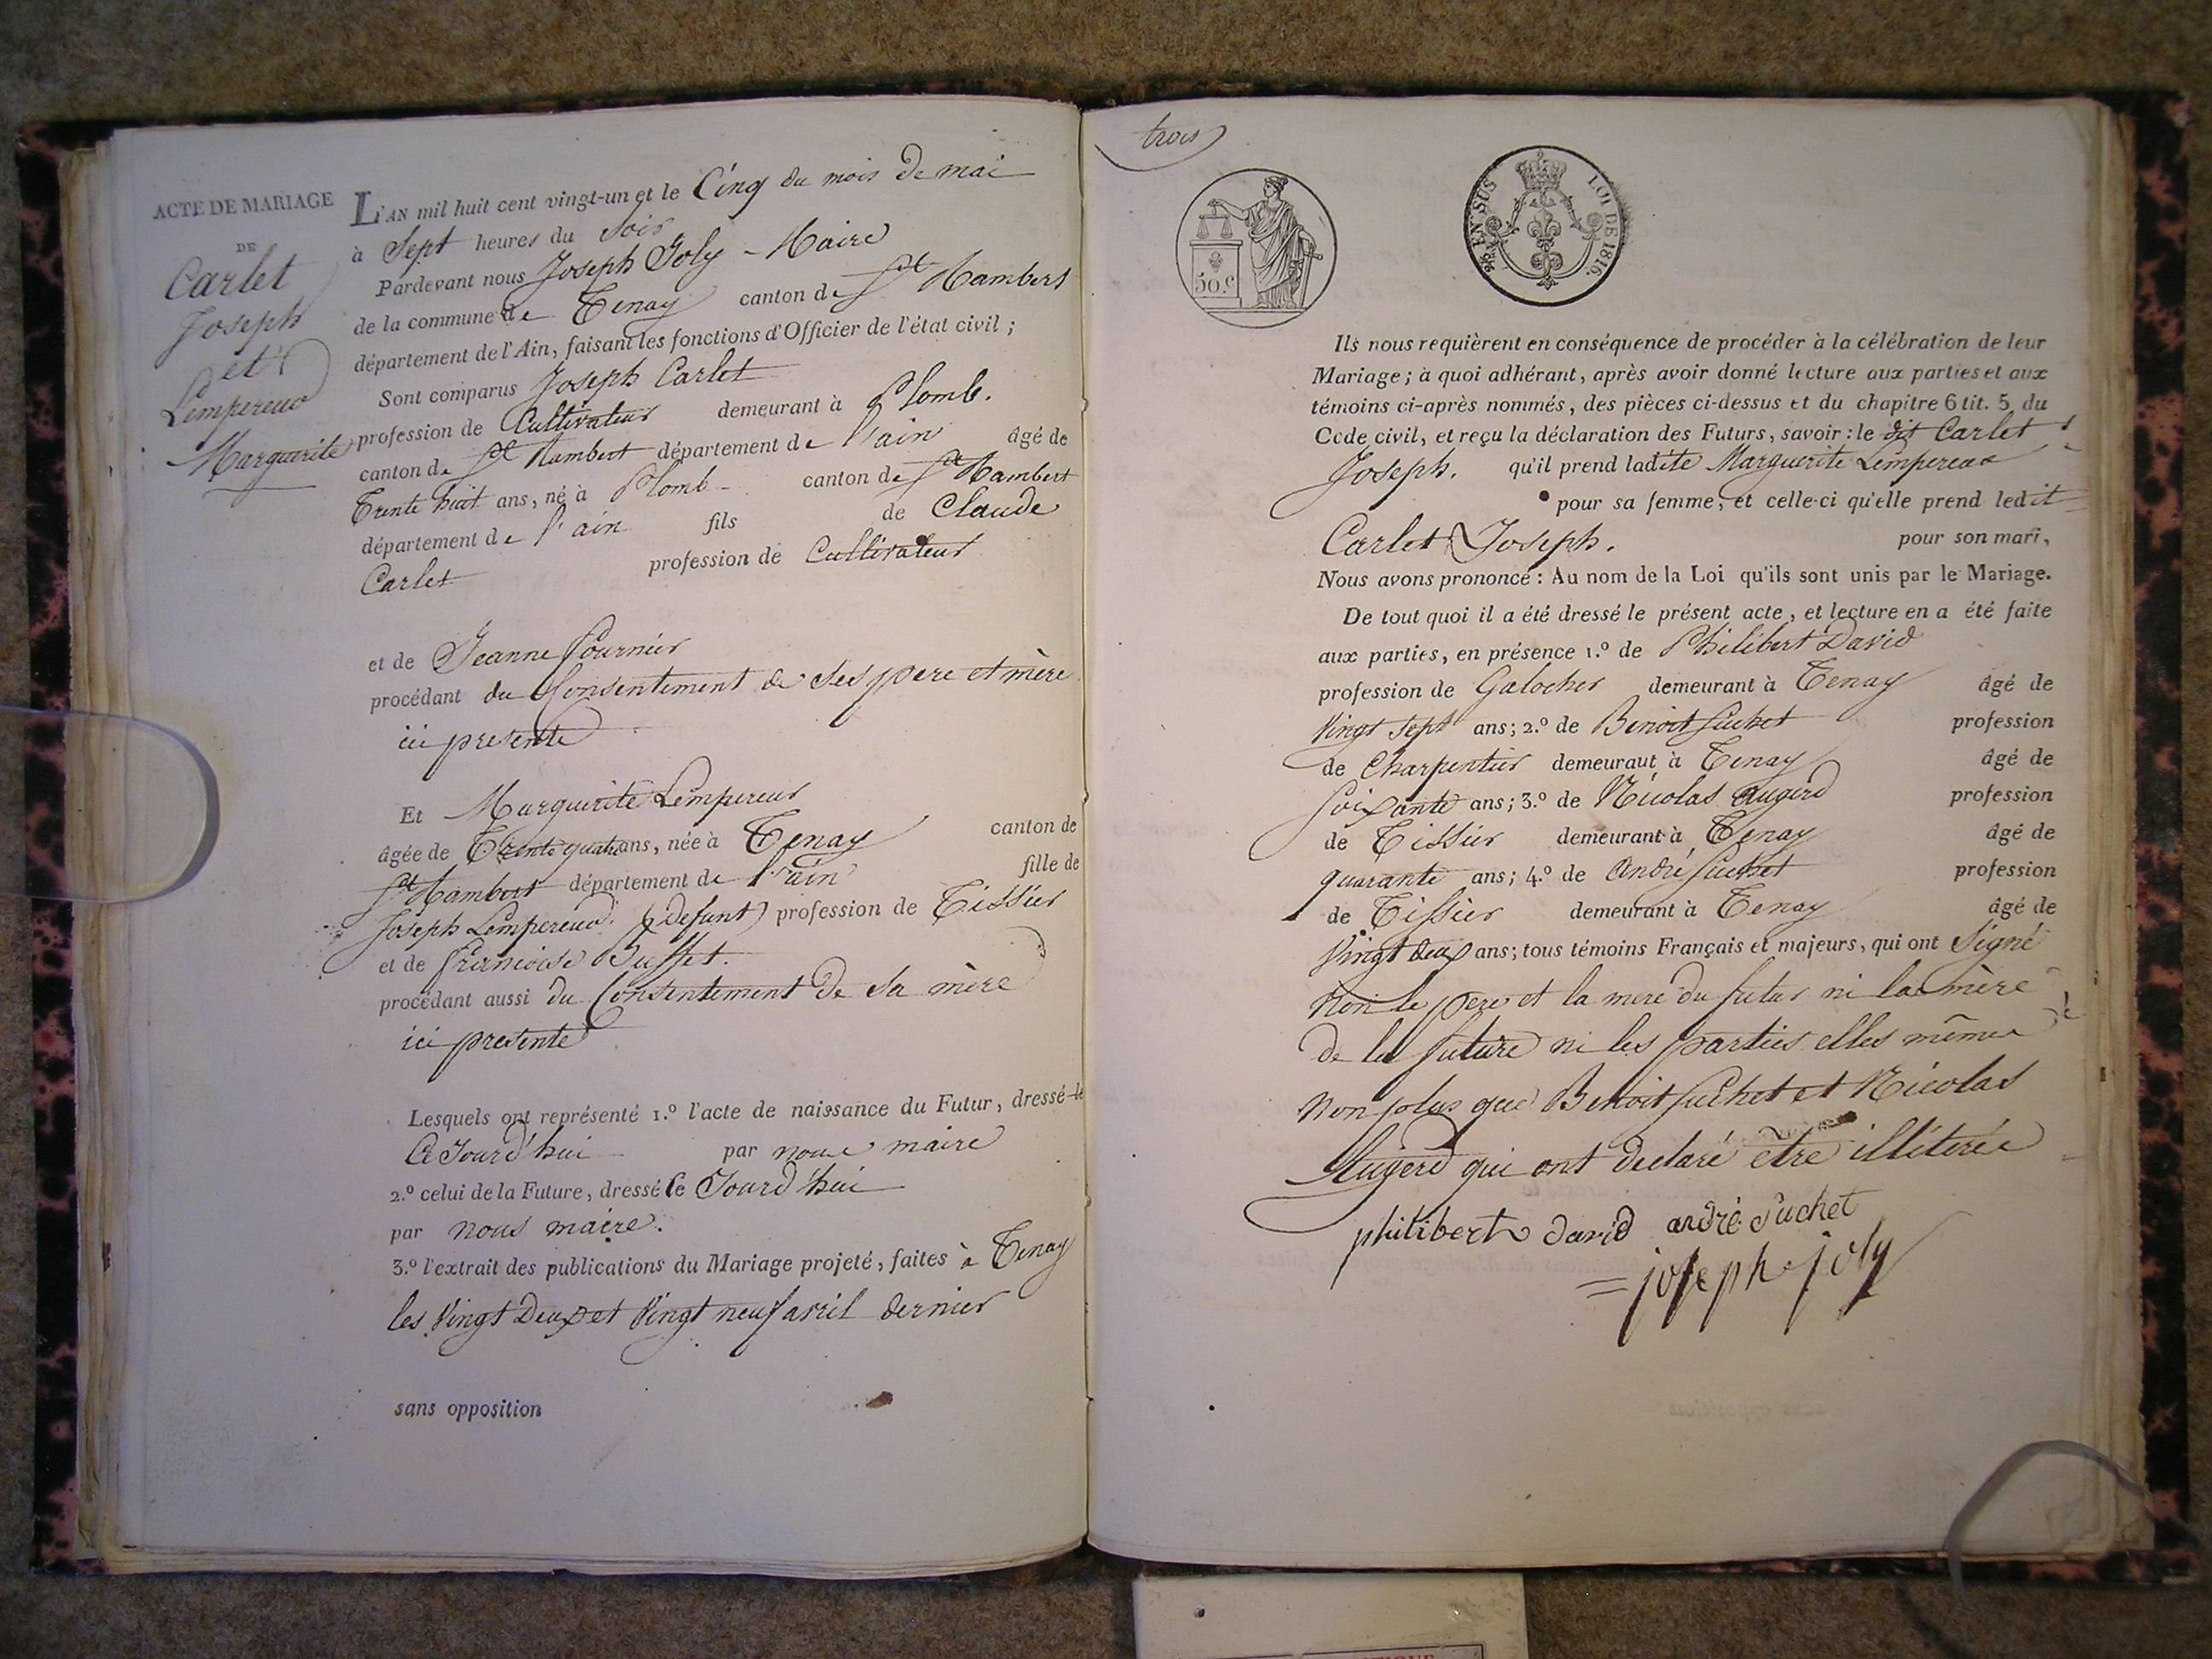 ACTE DE MARIAGE
DE
Carlet
Joseph
et
Lempereur
Marguerite
L'AN mil huit cent vingt-un et le Cinq du mois de mai
à Sept heures du Soir
Pardevant nous Joseph Joly - Maire
de la commune de Tenay canton de St Rambert
département de l'Ain, faisant les fonctions d'Officier de l'état civil ;
Sont comparus Joseph Carlet
profession de Cultivateur demeurant à Plomb.
canton de St Rambert département de l'ain âgé de
Trente huit ans, né à Plomb - canton de St Rambert
département de l'ain fils de Claude
Carlet profession de Cultivateur
et de Jeanne fournier
procédant du Consentement de Ses pere et mère
ici presente
Et Marguerite Lempereur
âgée de Trente quatre ans, née à Tenay canton de
St Rambert département de l'ain fille de
Joseph Lempereur (defunt) profession de Tissier
et de francoise Buffet.
procédant aussi du Consentement de Sa mère
ici presente
Lesquels ont représenté 1.º l'acte de naissance du Futur, dressé le
Ce Jourd'hui par nous maire
2.º celui de la Future, dressé ce Jourd'hui
par nous maire.
3.º l'extrait des publications du Mariage projeté, faites à Tenay
les Vingt Deux et Vingt neuf avril dernier
sans opposition
trois
50.c
EN SUS LOI DE 1816.
Ils nous requièrent en conséquence de procéder à la célébration de leur
Mariage ; à quoi adhérant, après avoir donné lecture aux parties et aux
témoins ci-après nommés, des pièces ci-dessus et du chapitre 6 tit. 5 du
Code civil, et reçu la déclaration des Futurs, savoir : le dit Carlet
Joseph. qu'il prend ladite Marguerite Lempereur
pour sa femme, et celle-ci qu'elle prend ledit
Carlet Joseph. pour son mari,
Nous avons prononcé : Au nom de la Loi qu'ils sont unis par le Mariage.
De tout quoi il a été dressé le présent acte, et lecture en a été faite
aux parties, en présence 1.º de Philibert David
profession de Galocher demeurant à Tenay âgé de
Vingt Sept ans ; 2.º de Benoit Suchet profession
de Charpentier demeuraut à Tenay âgé de
Soixante ans ; 3.º de Nicolas augerd profession
de Tissier demeurant à Tenay âgé de
quarante ans ; 4.º de André Suchet profession
de Tissier demeurant à Tenay âgé de
Vingt deux ans ; tous témoins Français et majeurs, qui ont Signé
Non le pere et la mere du futur ni la mère
de la future ni les parties elles mêmes
Non plus que Benoit Suchet et Nicolas
Augerd qui ont declaré etre illiterés
philibert david andré Suchet
joseph joly